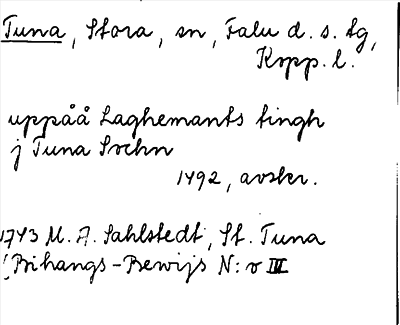 Tuna, Stora, sn, Falu d. s. tg,
Kopp. l.
uppåå Laghemants tingh
j Tuna Sochn
1492, avskr.
1743 M. A. Sahlstedt, St. Tuna
Bihangs-Bewijs N:o III